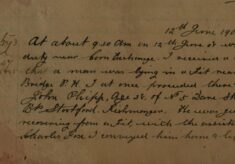 12th June 190
At about 9.50 AM on 12th June I
duty near Corn Exchange I received a
that a man was lying in a fit near
Bridge P.H. I at once proceeded there
John Phipp, Age 58, of No 5 Lane
Bp Stortford, Fishmonger. He was
recovering from a fit with the assista
Charles I conveyed him home